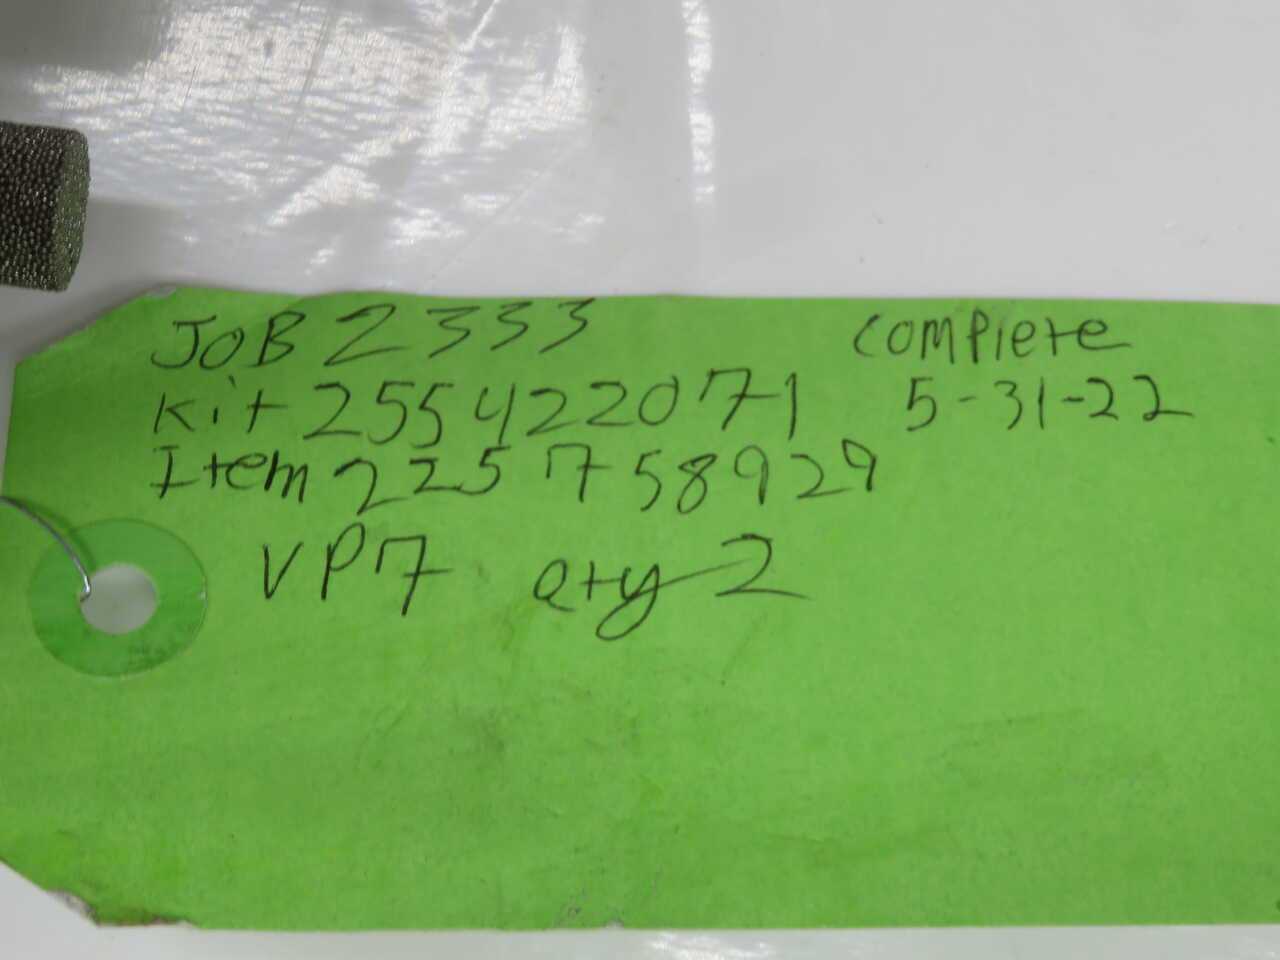 JOB 2333
Kit 255422071
Item 225758929
VP7 Qty 2
complete
5-31-22